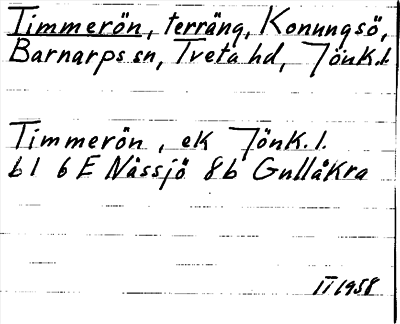 Timmerön, terräng, Konungsö,
Barnarps sn, Tveta hd, Jönk.l.
Timmerön, ek Jönk.l.
bl 6E Nässjö 8b Gullåkra
II 1958